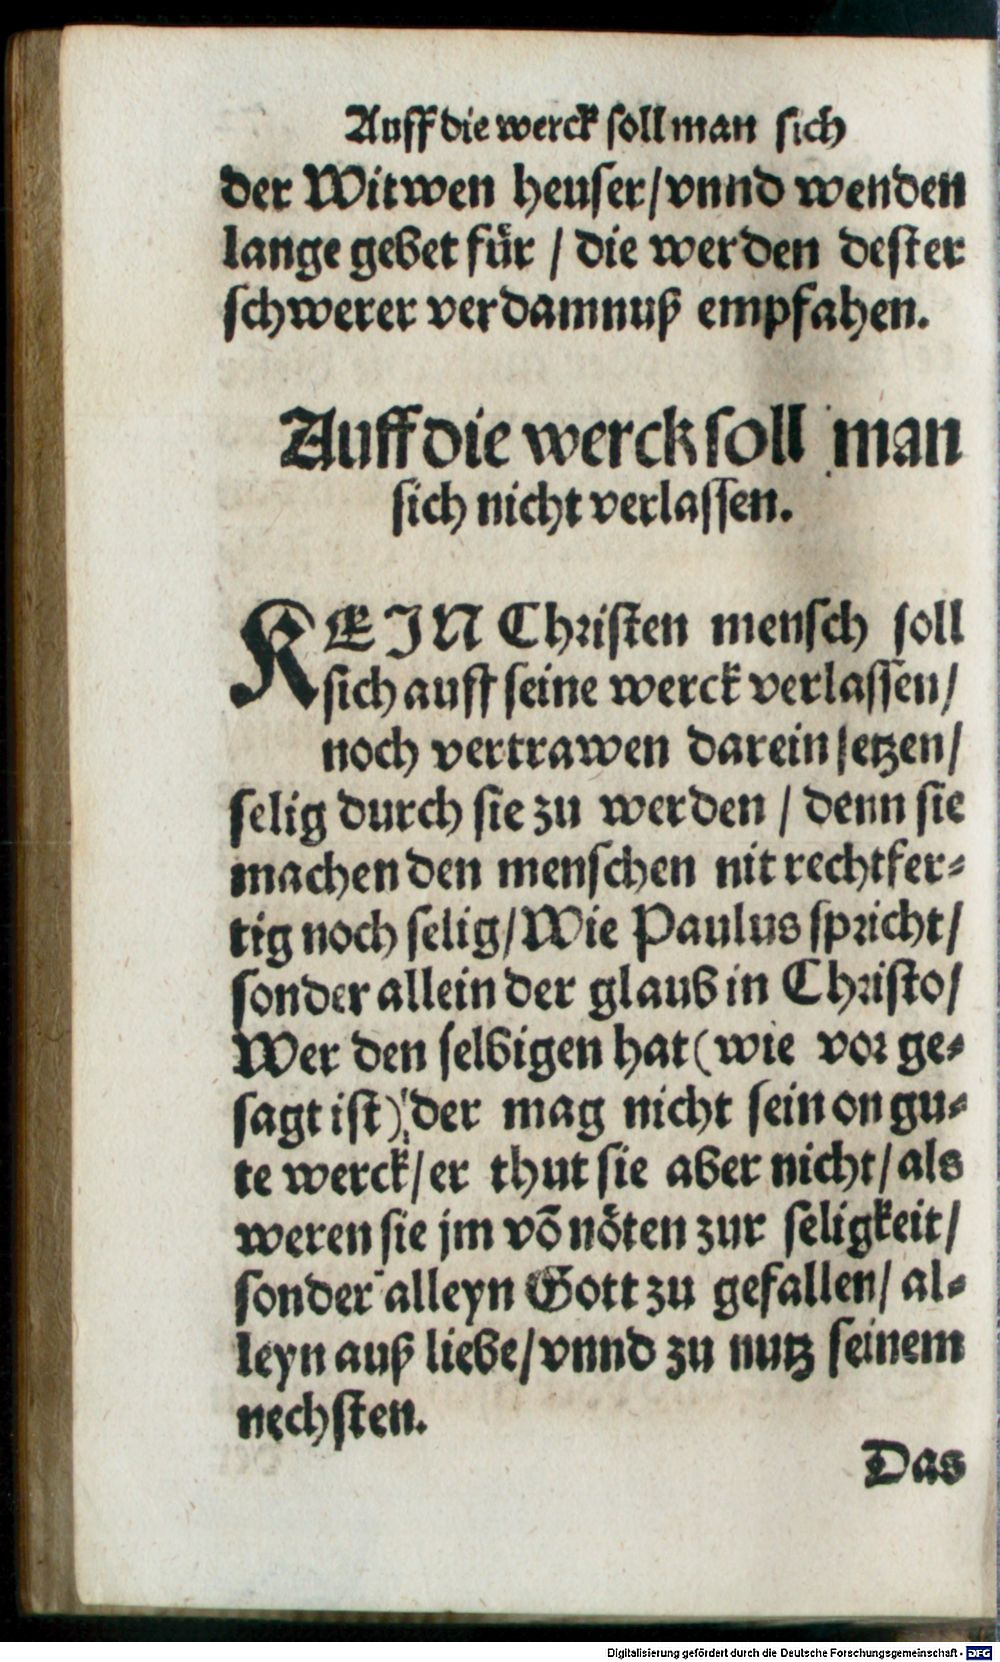 Auff die werck soll man sich
der Witwen heuser/ vnnd wenden
lange gebet für / die werden dester
schwerer verdamnuß empfahen.
Auff die werck soll man
sich nicht verlassen.
KEIN Christen mensch soll
sich auff seine werck verlassen/
noch vertrawen darein setzen/
selig durch sie zu werden / denn sie
machen den menschen nit rechtfer-
tig noch selig/ Wie Paulus spricht/
sonder allein der glaub in Christo/
Wer den selbigen hat (wie vor ge-
sagt ist) der mag nicht sein on gu-
te werck/ er thut sie aber nicht/ als
weren sie jm võ nöten zur seligkeit/
sonder alleyn Gott zu gefallen/ al-
leyn auß liebe/ vnnd zu nutz seinem
nechsten.
Das
Digitalisierung gefördert durch die Deutsche Forschungsgemeinschaft - DFG